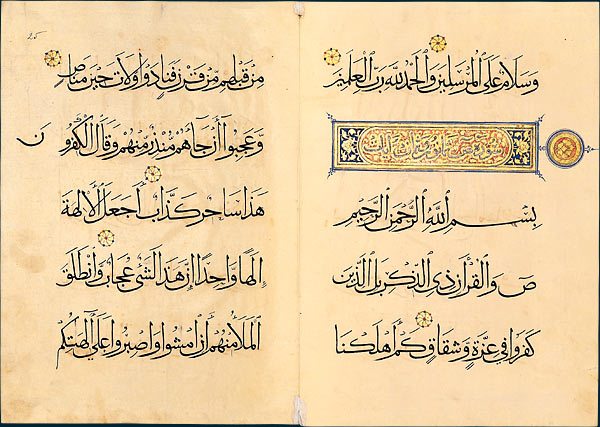 وَسَلَامٌ عَلَى ٱلْمُرْسَلِينَ وَٱلْحَمْدُ لِلَّهِ رَبِّ ٱلْعَلَمِينَ
سورة ص ثمانون وثمان ايات
بِسْمِ ٱللَّهِ ٱلرَّحْمَنِ ٱلرَّحِيمِ
صٓ وَٱلْقُرْآنِ ذِي ٱلذِّكْرِ بَلِ ٱلَّذِينَ
كَفَرُوا فِي عِزَّةٍ وَشِقَاقٍ كَمْ أَهْلَكْنَا
مِنْ قَبْلِهِمْ مِنْ قَرْنٍ فَنَادَوا وَلَاتَ حِينَ مَنَاصٍ
وَعَجِبُوا أَنْ جَاءَهُمْ مُنْذِرٌ مِنْهُمْ وَقَالَ ٱلْكَفِرُو
نَ
هَذَا سَاحِرٌ كَذَّابٌ أَجَعَلَ ٱلْآلِهَةَ
إِلَهًا وَاحِدًا إِنَّ هَذَا لَشَيْءٌ عُجَابٌ وَٱنْطَلَقَ
ٱلْمَلَأُ مِنْهُمْ أَنِ ٱمْشُوا وَٱصْبِرُوا عَلَى آلِهَتِكُمْ